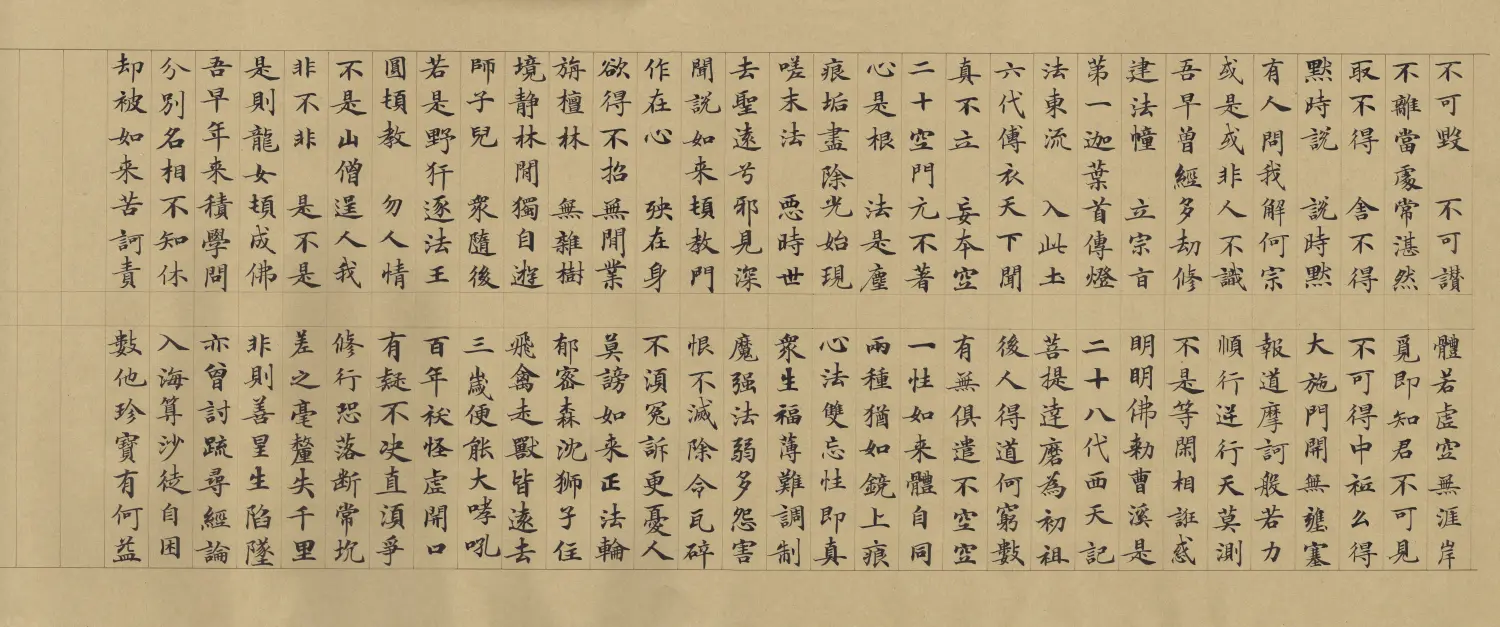 不可毀　不可讃　體若虛空無涯岸
不離當處常湛然　覓即知君不可見
取不得　舍不得　不可得中秖么得
默時說　說時默　大施門開無壅塞
有人問我解何宗　報道摩訶般若力
或是或非人不識　順行逆行天莫測
吾早曾經多劫修　不是等閑相誑惑
建法幢　立宗旨　明明佛勑曹溪是
第一迦葉首傳燈　二十八代西天記
法東流　入此土　菩提達磨為初祖
六代傳衣天下聞　後人得道何窮數
真不立　妄本空　有無俱遣不空空
二十空門元不著　一性如来體自同
心是根　法是塵　兩種猶如鏡上痕
痕垢盡除光始現　心法雙忘性即真
嗟末法　惡時世　衆生福薄難調制
去聖遠兮邪見深　魔强法弱多怨害
聞說如来頓教門　恨不滅除令瓦碎
作在心　殃在身　不湏冤訴更憂人
欲得不招無間業　莫謗如来正法輪
旃檀林　無雜樹　郁密森沈獅子住
境静林間獨自遊　飛禽走獸皆遠去
師子兒　衆隨後　三嵗便能大哮吼
若是野犴逐法王　百年妖怪虛開口
圓頓教　勿人情　有疑不决直湏爭
不是山僧逞人我　修行恐落断常坑
非不非　是不是　差之毫釐失千里
是則龍女頓成佛　非則善星生陷墜
吾早年来積學問　亦曾討疏尋經論
分別名相不知休　入海算沙徒自困
却被如来苦訶責　數他珍寶有何益